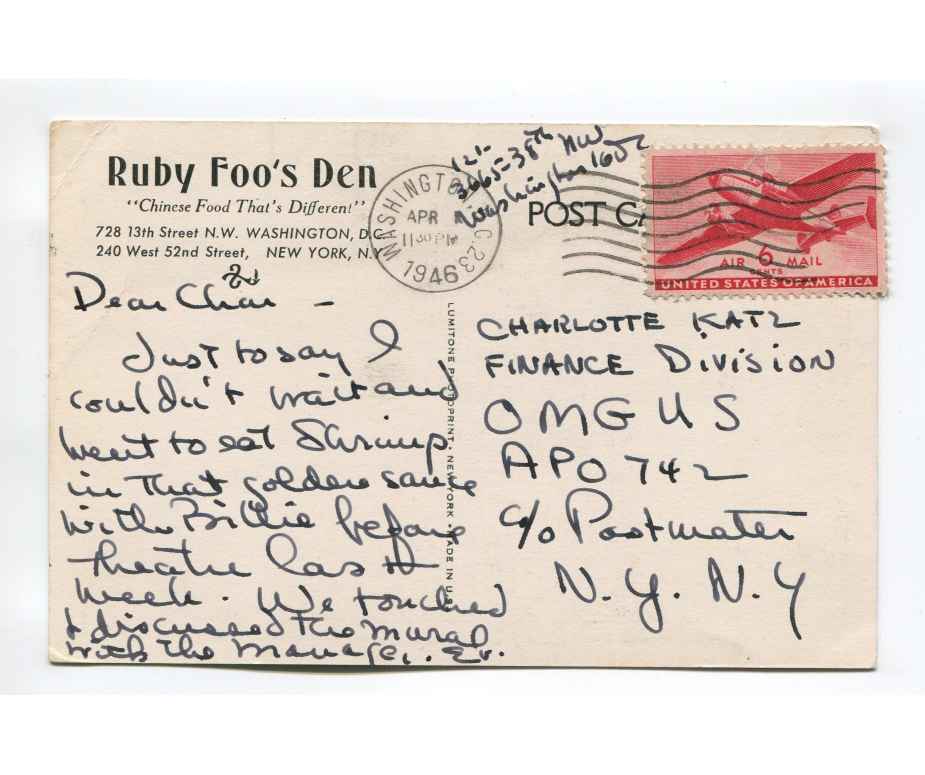 Ruby Foo's Den
"Chinese Food That's Different"
728 13th Street N.W. WASHINGTON, D.C.
240 West 52nd Street, NEW YORK, N.Y.
WASHINGTON, D.C. 23
APR
11 30 PM
1946
3665-38th NW
Washington 16 DC
POST CA
AIR 6 MAIL
CENTS
UNITED STATES OF AMERICA
Dear Char -
Just to say I
couldn't wait and
went to eat Shrimp
in that golden sauce
with Billie before
theatre last
week. We touched
& discussed the mural
with the manager. Ev.
LUMITONE PHOTOPRINT · NEW YORK · MADE IN U.S.A.
CHARLOTTE KATZ
FINANCE DIVISION
OMGUS
APO 742
c/o Postmater
N.Y. N.Y